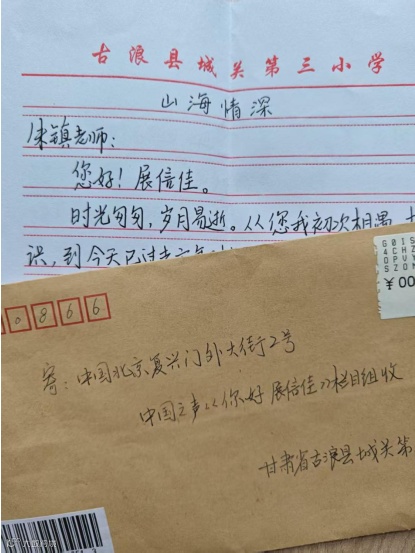 古浪县城关第三小学
山海情深
镇老师：
您好！展信佳。
时光匆匆，岁月易逝。从您我初次相遇、
识，到今天已过去
¥00
0866
寄：中国北京复兴门外大街2号
中国之声《你好 展信佳》栏目组收
甘肃省古浪县城关第